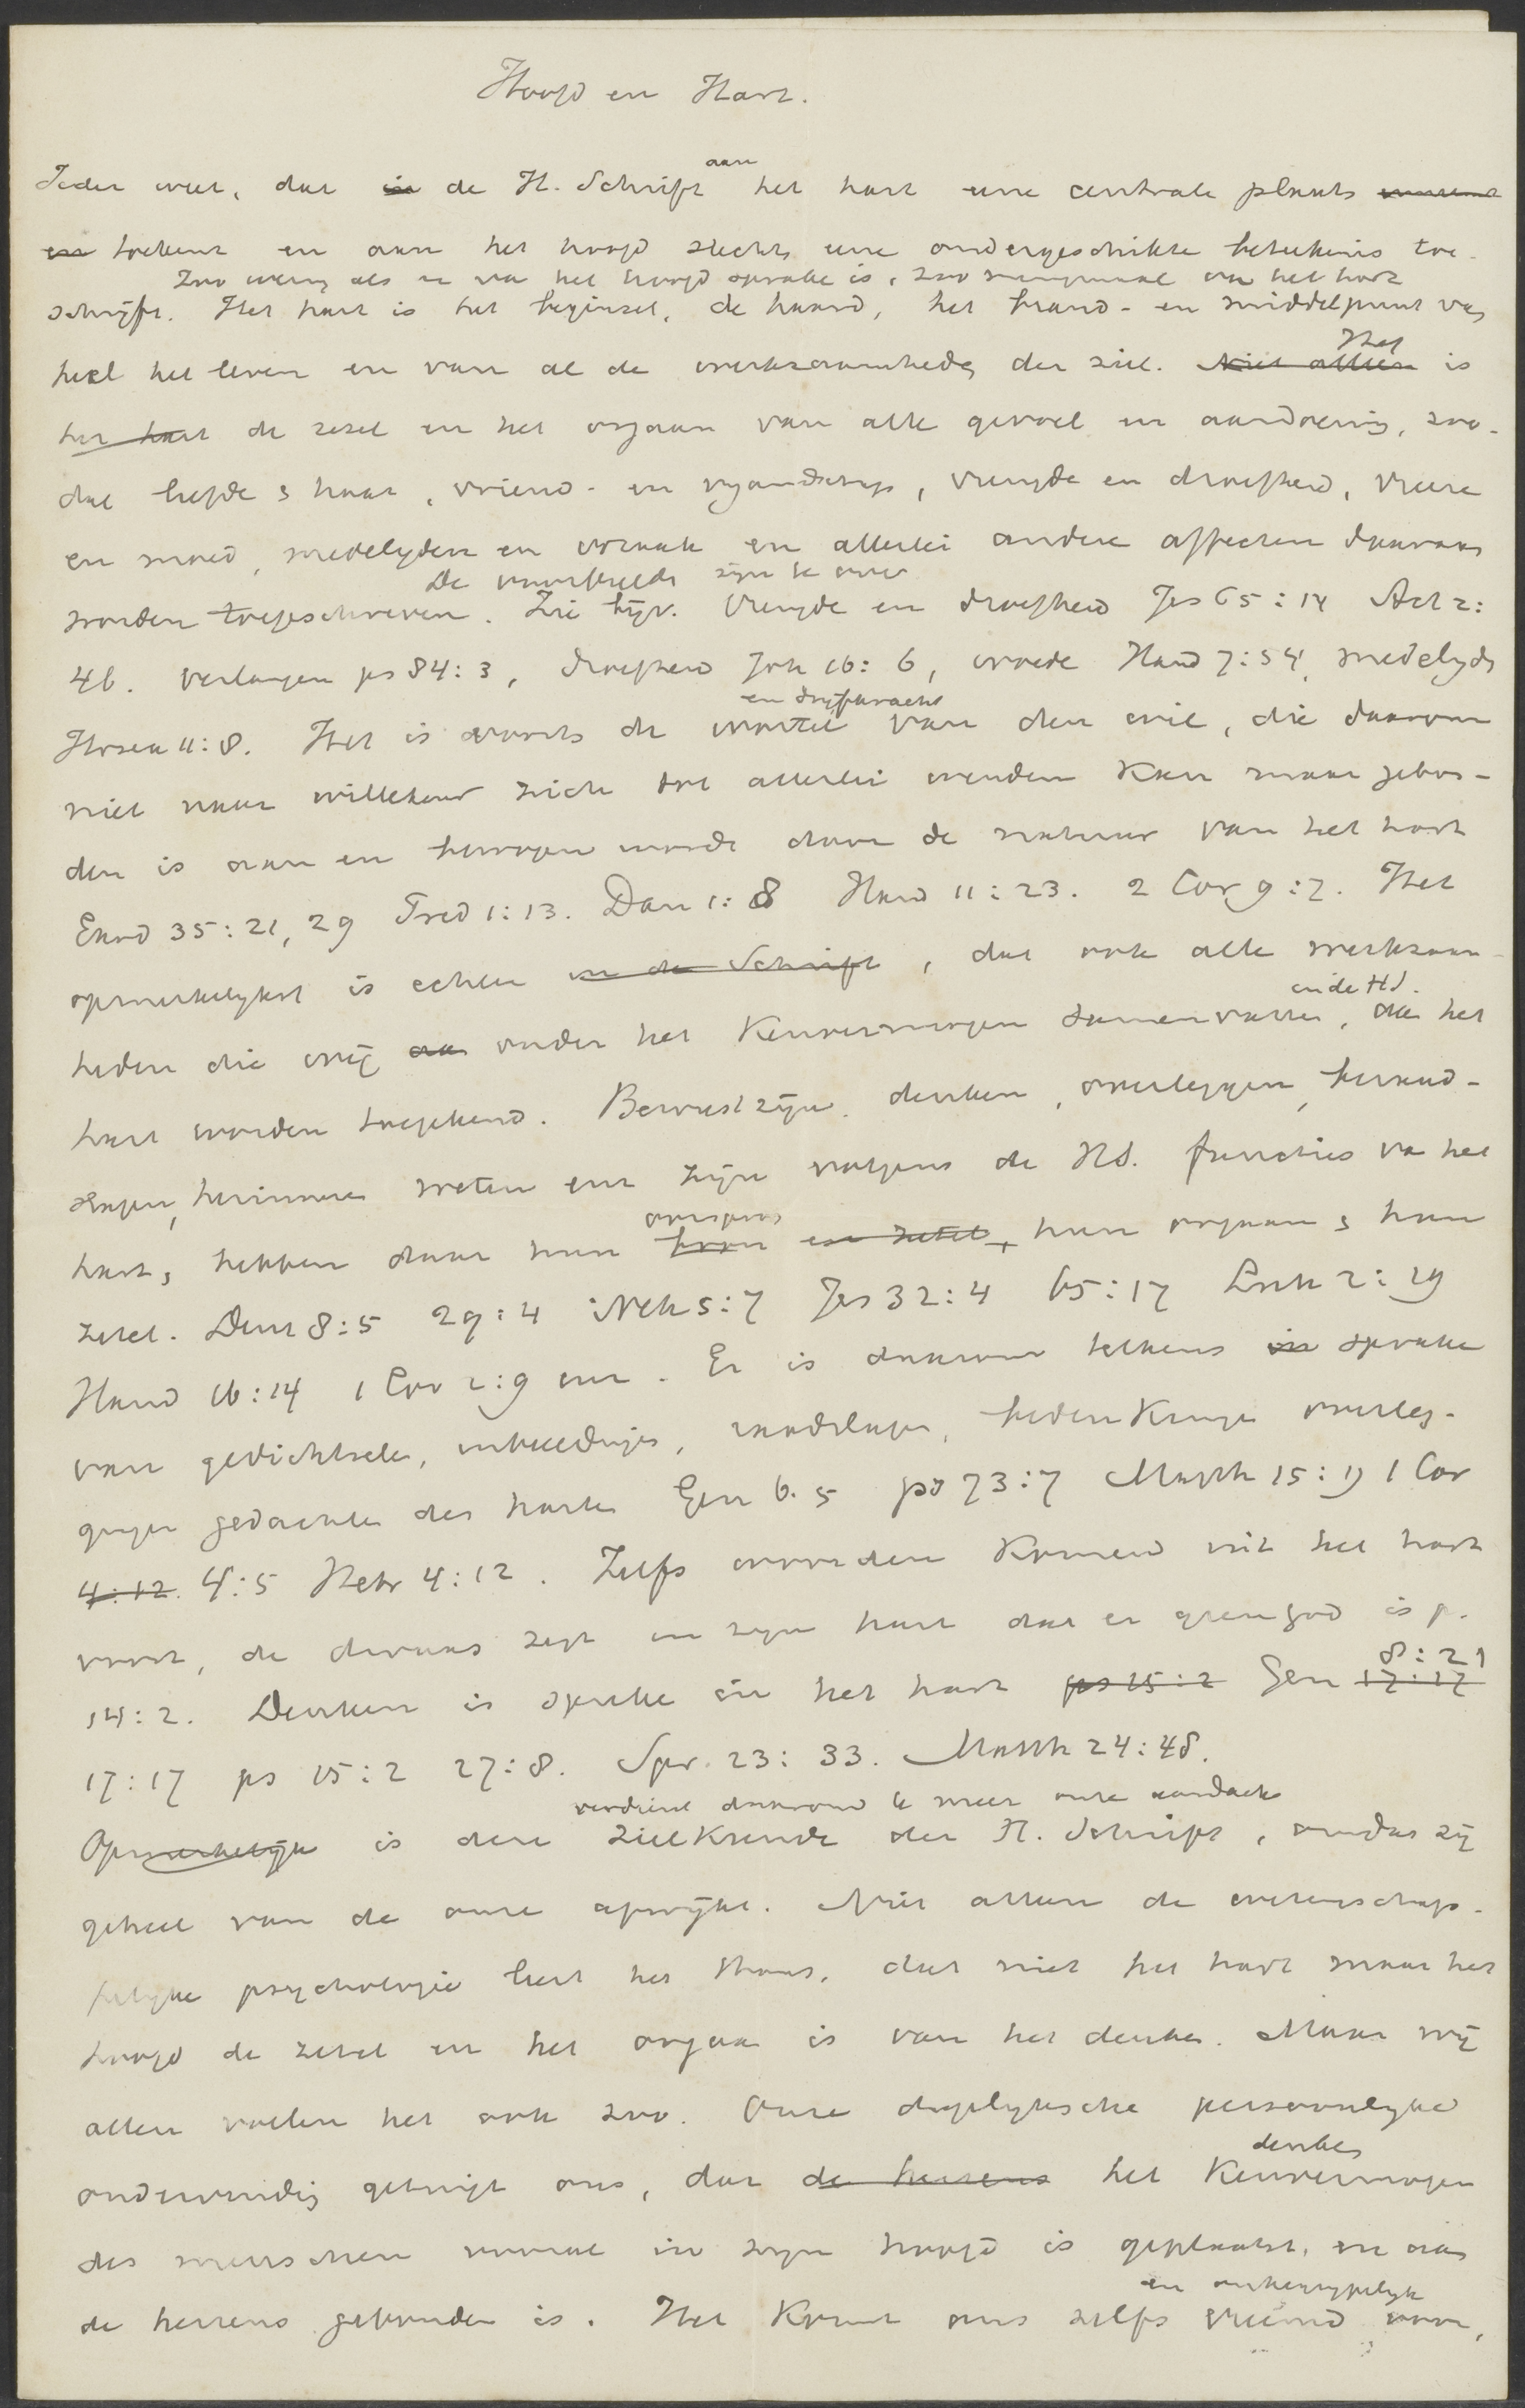 Hoofd en Hart.
Ieder weet, dat in de H. Schrift aan het hart eene centrale plaats
en toekent en aan het hoofd slechts eene ondergeschikte beteekenis toe-
Zoo weinig als er van het hoofd sprake is, zoo menigmaal van het hart
schrijft. Het hart is het beginsel, de haard, het brand- en middelpunt van
heel het leven en van al de werkzaamheden der ziel. Niet alleen Het is
het hart de zetel en het orgaan van alle gevoel en aandoening, zoo-
dat liefde & haat, vriend- en vijandschap, vreugde en droefheid, vreeze
en moed, medelijden en wraak en allerlei andere affecten daaraan
De voorbeelden zijn te over
worden toegeschreven. Zie bijv. vreugde en droefheid Jes 65:14 Act 2:
46. verlangen ps 84:3, droefheid Joh 16:6, woede Hand 7:54, medelijden
Hosea 11:8. Het is voorts de wortel en drijfkracht van den wil, die daarom
niet naar willekeur zich tot allerlei wenden kan maar gebon-
den is aan en bewogen wordt door de natuur van het hart
Exod 35:21, 29 Pred 1:13. Dan 1:8 Hand 11:23. 2 Cor 9:7. Het
opmerkelijkst is echter in de Schrift, dat ook alle werkzaam-
heden die wij onder het Kenvermogen samenvatten, in de HS. aan het
hart worden toegekend. Bewustzijn, denken, overleggen, beraad-
slagen, herinneren weten enz zijn volgens de HS. functies van het
hart, hebben daar hun bron en zetel, oorsprong hun orgaan & hun
zetel. Deut 8:5 29:4 Neh 5:7 Jes 32:4 65:17 Luk 2:19
Hand 16:14 1 Cor 2:9 enz. Er is daarom telkens in sprake
van gedichtselen, inbeeldingen, raadslagen, bedenkingen overleg-
gingen gedachten des harten Gen 6.5 ps 73:7 Matth 15:19 1 Cor
4:12. 4:5 Hebr 4:12. Zelfs woorden komend uit het hart
voort, de dwaas zegt in zijn hart dat er geen God is ps.
14:2. Denken is spreken in het hart ps 15:2 Gen 17:17 8:21
17:17 ps 15:2 27:8. Spr. 23:33. Matth 24:48.
verdient daarom te meer onze aandacht
Opmerkelijk is deze zielkunde der H. Schrift, omdat zij
geheel van de onze afwijkt. Niet alleen de wetenschap-
pelijke psychologie leert het thans, dat niet het hart maar het
hoofd de zetel en het orgaan is van het denken. Maar wij
allen voelen het ook zoo. Onze dagelijksche persoonlijke
ondervinding getuigt ons, dat de hersens het denken Kenvermogen
des menschen vooral in zijn hoofd is geplaatst, en aan
de hersens gebonden is. Het komt ons zelfs vreemd en onbegrijpelijk voor,